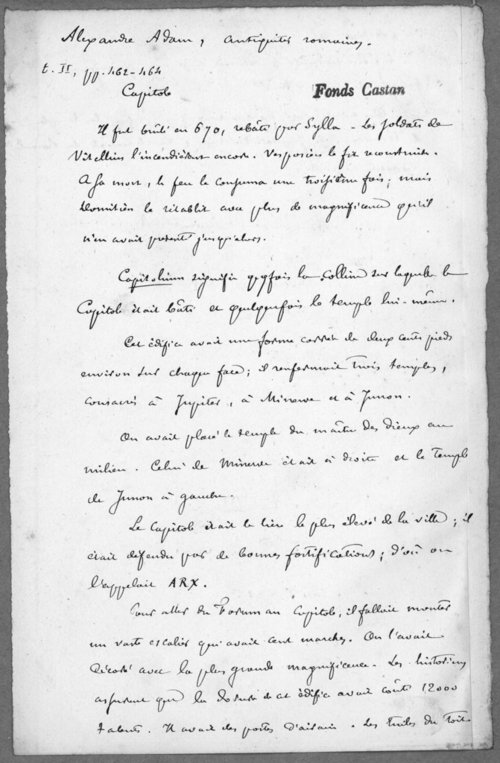 Alexandre Adam, antiquités romaines.
t. II, pp. 462-464
Capitole
Fonds Castan
Il fut brûlé en 670, rebâti par Sylla. Les soldats de
Vitellius l'incendièrent encore. Vespasien le fit reconstruire.
A sa mort, le feu le consuma une troisième fois; mais
Domitien le rétablit avec plus de magnificence qu'il
n'en avait présenté jusqu'alors.
Capitolium signifie qqfois la colline sur laquelle le
Capitole était bâti et quelquefois le temple lui-même.
Cet édifice avait une forme carrée de deux cents pieds
environ sur chaque face; il renfermait trois temples,
consacrés à Jupiter, à Minerve et à Junon.
On avait placé le temple du maître des dieux au
milieu. Celui de Minerve était à droite et le Temple
de Junon à gauche.
Le Capitole était le lieu le plus élevé de la ville; il
était défendu par de bonnes fortifications; d'où on
l'appelait ARX.
Pour aller du Forum au Capitole, il fallait monter
un vaste escalier qui avait cent marches. On l'avait
décoré avec la plus grande magnificence. Les historiens
assurent que la dorure de cet édifice avait coûté 12000
talents. Il avait des portes d'airain. Les tuiles du toit